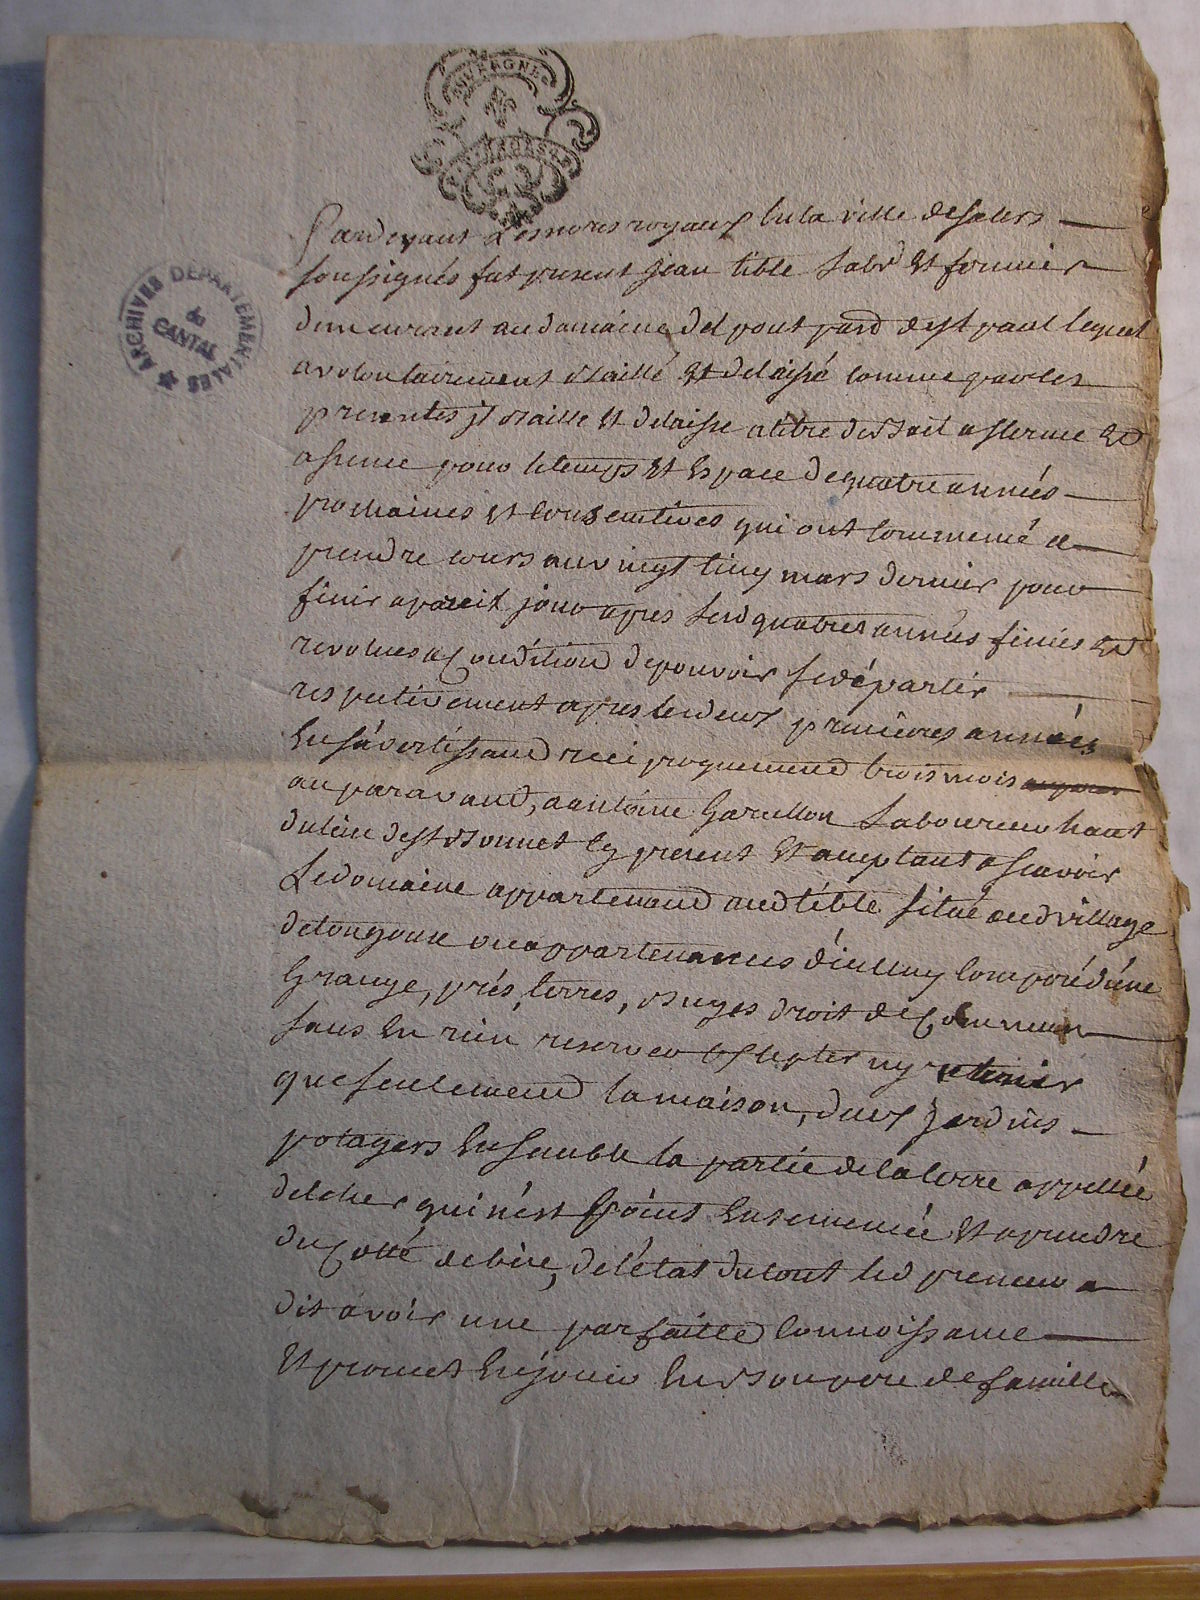 AUVERGNE
Pardevant Les no.res royaux En la ville de salers
soussignés fut present Jean tible Labr Et fermier
demeurant au domaine del pont pard de st paul lequel
a volontairement Baillé Et delaissé comme par les
presentes il Baille Et delaisse a titre de Bail a ferme Et
afferme pour le temps Et Espace de quatre années
prochaines Et consecutives qui ont commencé a
prendre cours au vingt cinq mars dernier pour
finir a pareil jour apres lesd quatres années finies Et
revolues a Condition de pouvoir se départir
respectivement apres les deux premières années
En s'avertissand reciproquemend trois mois
au paravand, a antoine Garcellon Laboureur hant
du lieu de st Bonnet Cy present Et acceptant a scavoir
Le domaine appartenand aud tible situé aud village
de Longoure ou appartenances d'icelluy composé d'une
Grange, prés, terres, Buges droit de Commun
sans En rien reserver Excepter ny retenir
que seulemend la maison, deux Jardins
potagers Ensemble la partie de la terre appellée
delcher qui n'est point Ensemencée Et a prendre
du Cotté de bise, de l'état du tout led preneur a
dit avoir une parfaitte connoissance
Et promet En jouir En Bon pere de famille
ARCHIVES DÉPARTEMENTALES
du
CANTAL